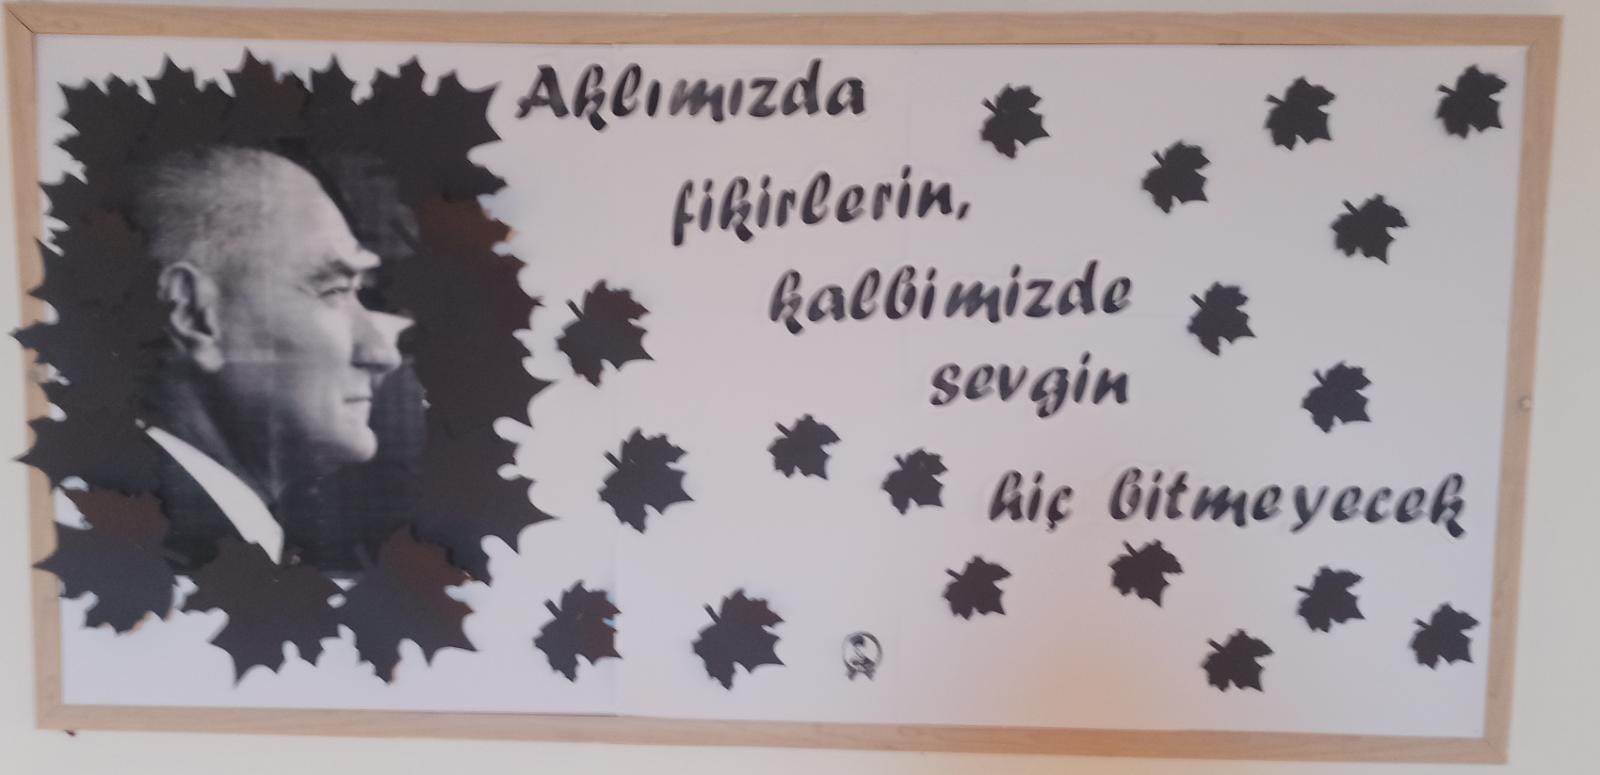 Aklımızda
fikirlerin,
kalbimizde
sevgin
hiç bitmeyecek